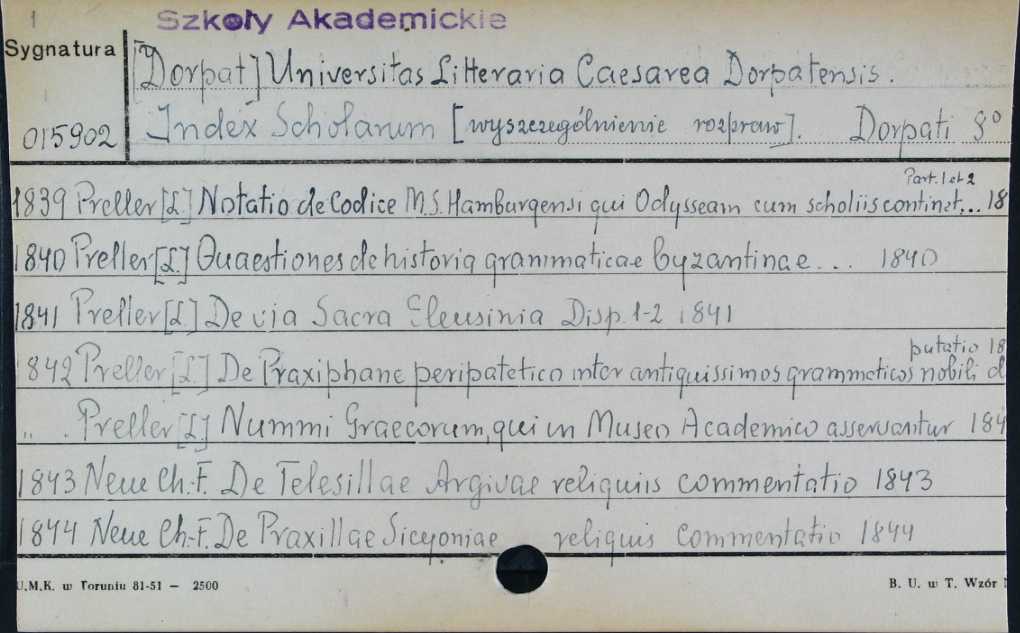 1 Szkoły Akademickie
Sygnatura
[Dorpat] Universitas Litteraria Caesarea Dorpatensis.
015902 Index Scholarum [wyszczególnienie rozpraw]. Dorpati 8°
Part. 1 et 2
1839 Preller [L.] Notatio de Codice M.S. Hamburgensi qui Odysseam cum scholiis continet... 18
1840 Preller [L.] Quaestiones de historia grammaticae byzantinae... 1840
1841 Preller [L.] De via Sacra Eleusinia Disp. 1-2 1841
putatio 18
1842 Preller [L.] De Praxiphane peripatetico inter antiquissimos grammaticos nobili d
„ . Preller [L.] Nummi Graecorum, qui in Museo Academico asservantur 184
1843 Neue Ch.-F. De Telesillae Argivae reliquiis commentatio 1843
1844 Neue Ch.-F. De Praxillae Sicyoniae reliquis commentatio 1844
U.M.K. w Toruniu 81-51 — 2500
B. U. w T. Wzór